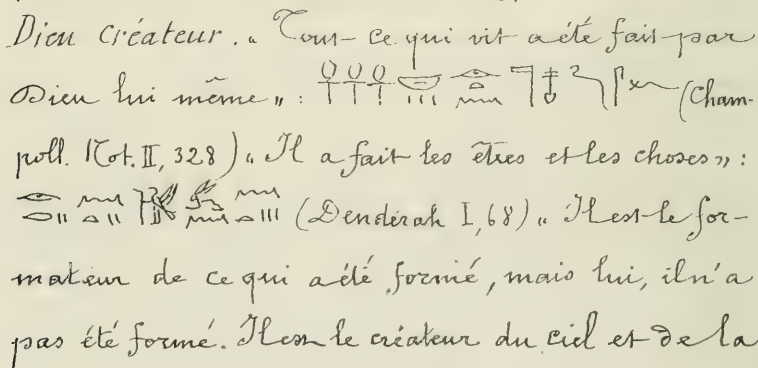 Dieu Créateur. „ Tout ce qui vit a été fait par
Dieu lui même „ : (Cham-
poll. Not. II, 328) „ Il a fait les êtres et les choses „ :
(Dendérah I, 68) „ Il est le for-
mateur de ce qui a été formé, mais lui, il n'a
pas été formé. Il est le créateur du ciel et de la